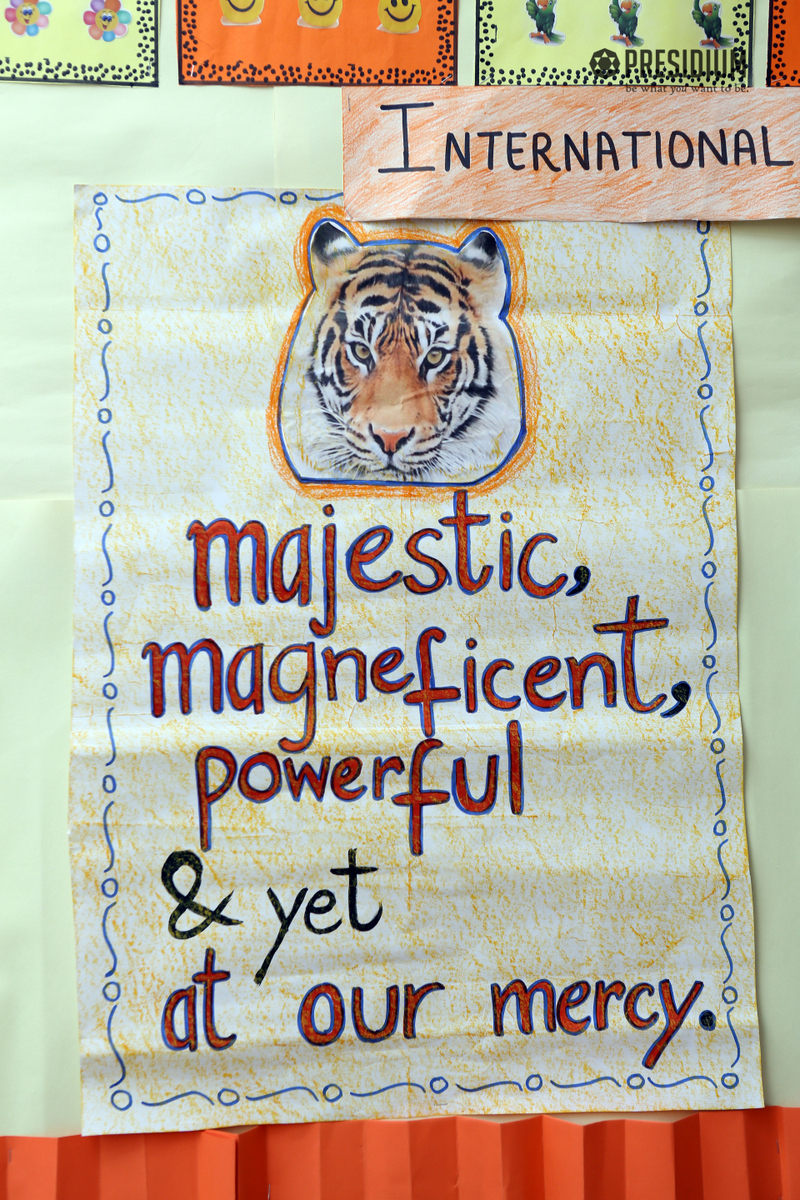 PRESIDIUM
be what you want to be.
INTERNATIONAL
majestic,
magneficent,
powerful
& yet
at our mercy.